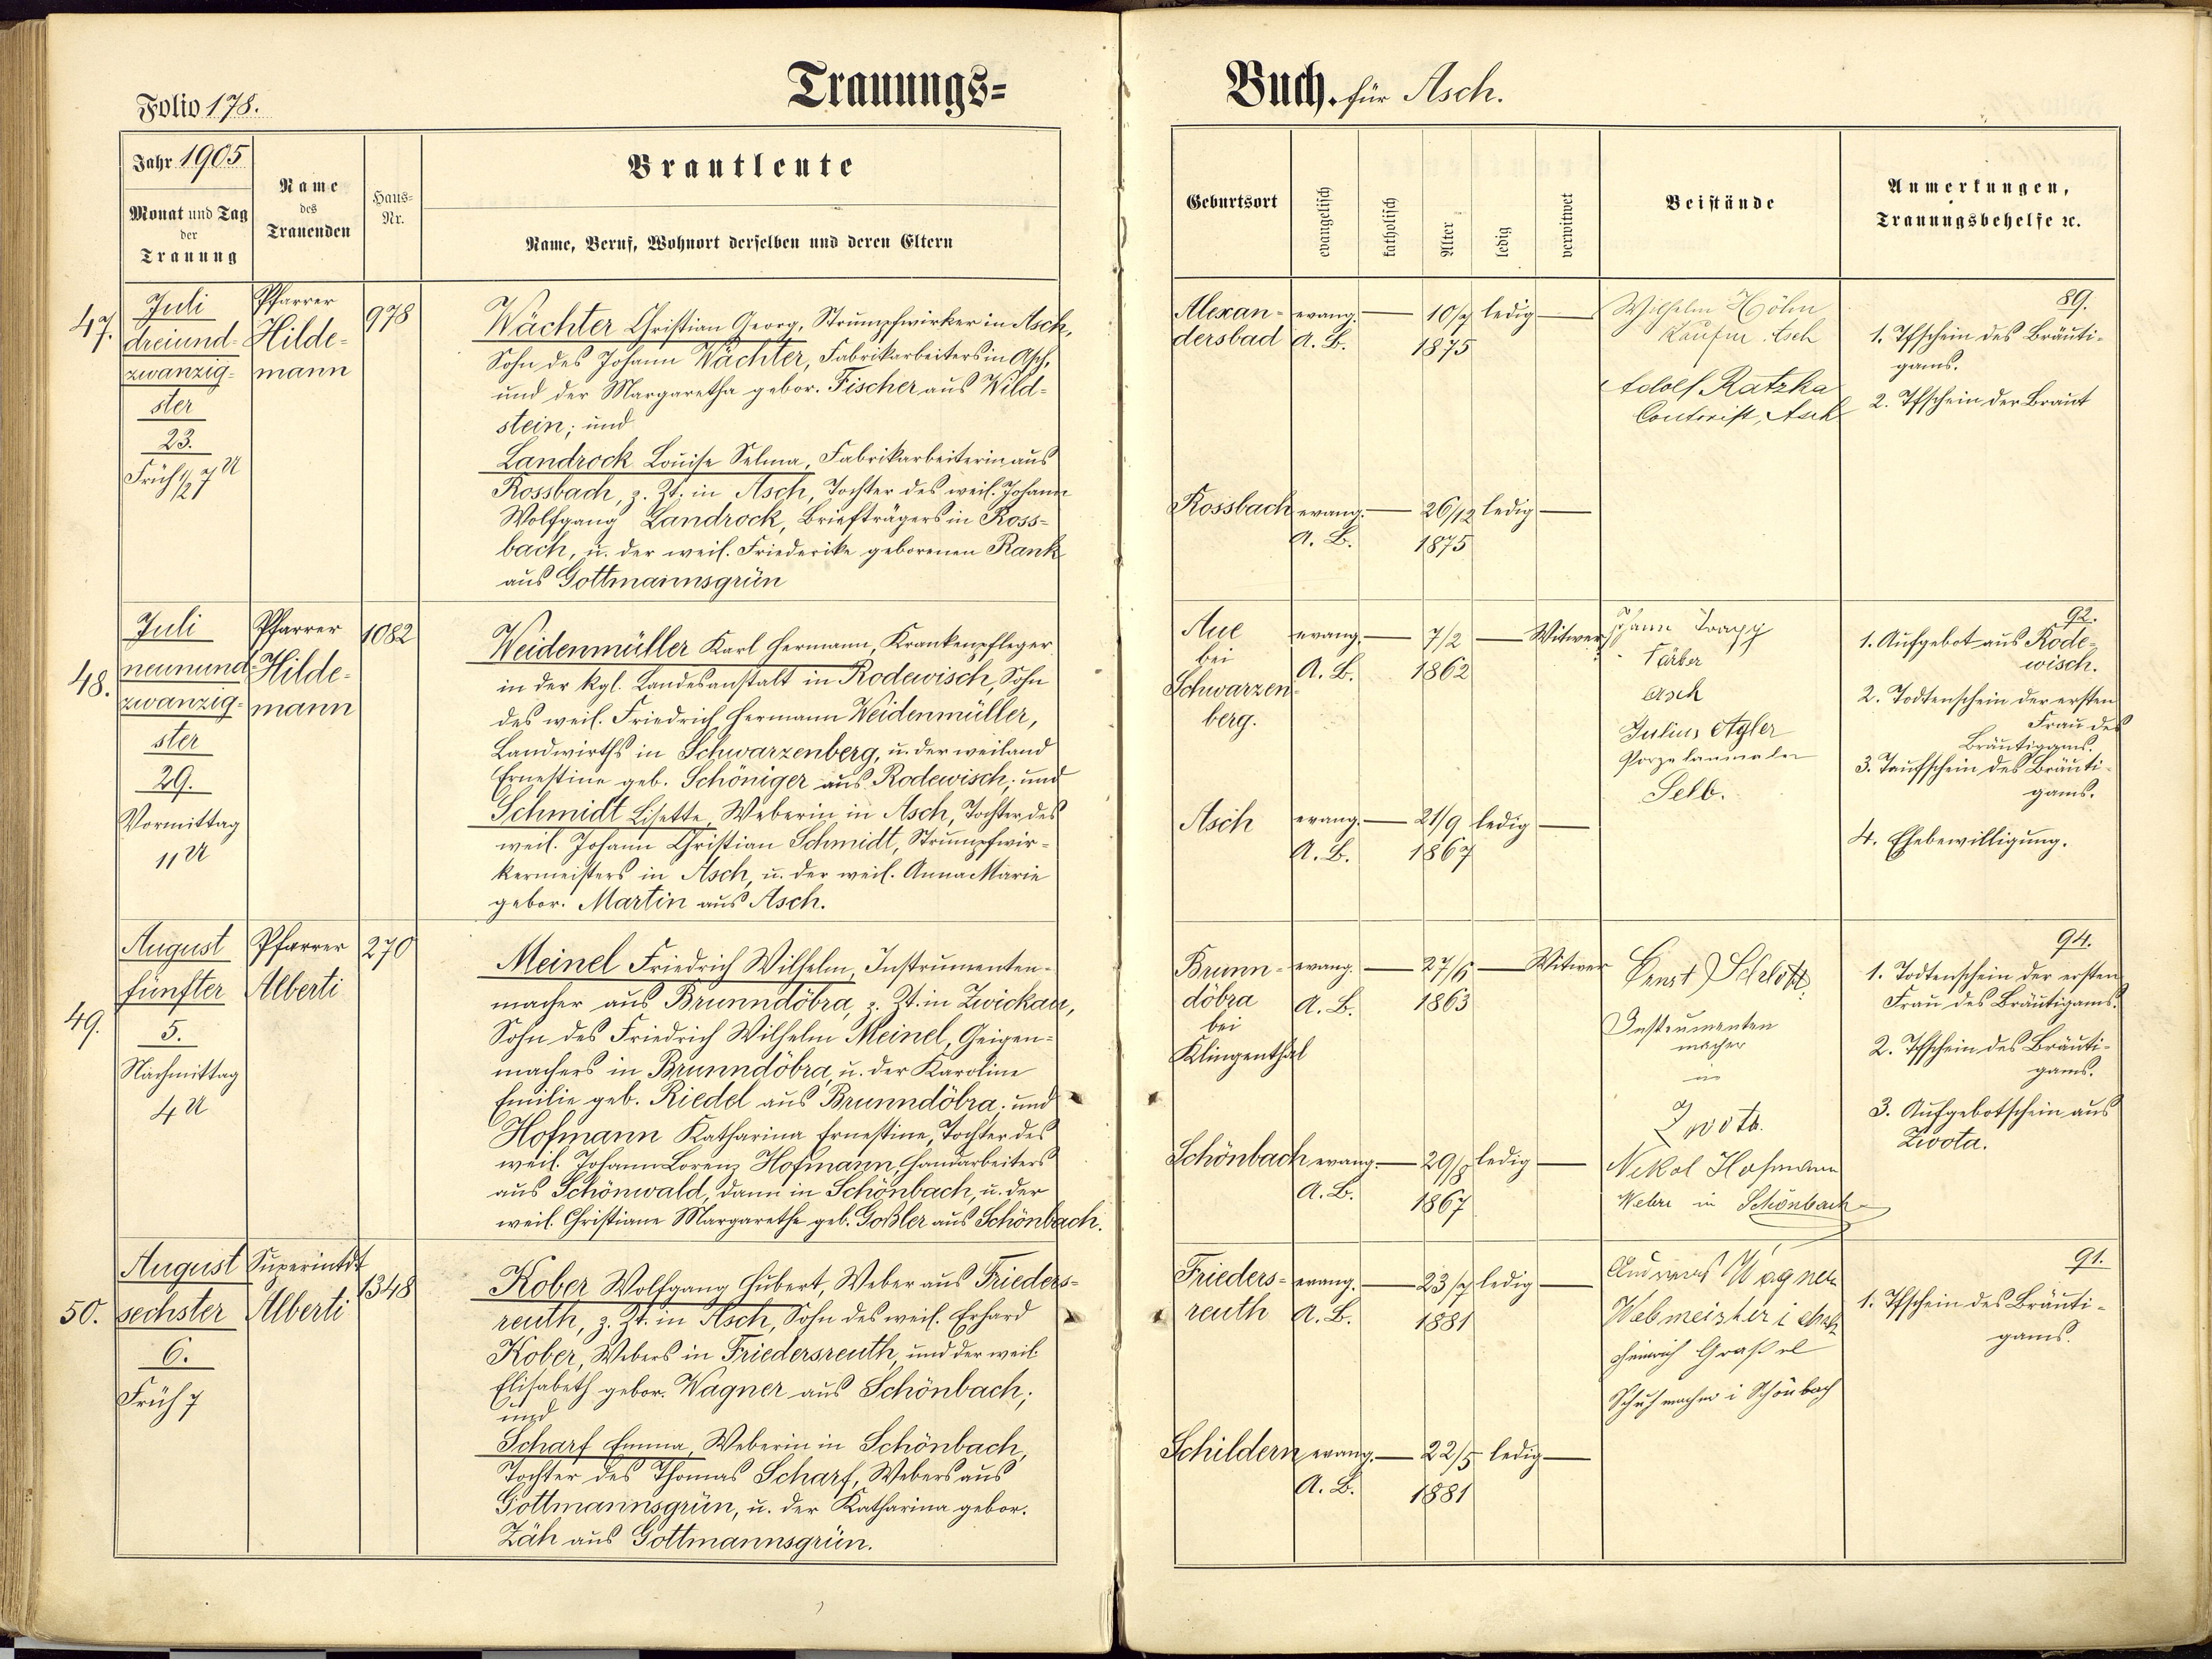 Folio 178.
Trauungs=
Jahr 1905
Monat und Tag
der
Trauung
Name
des
Trauenden
Haus-
Nr.
Brautleute
Name, Beruf, Wohnort derselben und deren Eltern
47.
Juli
dreiund-
zwanzig-
ster
23.
Früh 1/2 7 U
Pfarrer
Hilde-
mann
978
Wächter Christian Georg, Strumpfwirker in Asch,
Sohn des Johann Wächter, Fabrikarbeiters in Asch,
und der Margaretha gebor. Fischer aus Wild-
stein; und
Landrock Louise Selma, Fabrikarbeiterin aus
Rossbach, z. Zt. in Asch, Tochter des weil. Johann
Wolfgang Landrock, Briefträgers in Ross-
bach, u. der weil. Friederike geborenen Rank
aus Gottmannsgrün
48.
Juli
neunund-
zwanzig-
ster
29.
Vormittag
11 U
Pfarrer
Hilde-
mann
1082
Weidenmüller Karl Hermann, Krankenpfleger
in der kgl. Landesanstalt in Rodewisch, Sohn
des weil. Friedrich Hermann Weidenmüller,
Landwirths in Schwarzenberg, u. der weiland
Ernestine geb. Schöniger aus Rodewisch; und
Schmidt Lisette, Weberin in Asch, Tochter des
weil. Johann Christian Schmidt, Strumpfwir-
kermeisters in Asch, u. der weil. Anna Marie
gebor. Martin aus Asch.
49.
August
fünfter
5.
Nachmittag
4 U
Pfarrer
Alberti
270
Meinel Friedrich Wilhelm, Instrumenten-
macher aus Brunndöbra, z. Zt. in Zwickau,
Sohn des Friedrich Wilhelm Meinel, Geigen-
machers in Brunndöbra, u. der Karoline
Emilie geb. Riedel aus Brunndöbra; und
Hofmann Katharina Ernestine, Tochter des
weil. Johann Lorenz Hofmann, Handarbeiters
aus Schönwald, dann in Schönbach, u. der
weil. Christiane Margarethe geb. Goßler aus Schönbach.
50.
August
sechster
6.
Früh 7
Superintdt
Alberti
1348
Kober Wolfgang Hubert, Weber aus Frieders-
reuth, z. Zt. in Asch, Sohn des weil. Erhard
Kober, Webers in Friedersreuth, und der weil.
Elisabeth gebor. Wagner aus Schönbach;
und
Scharf Emma, Weberin in Schönbach,
Tochter des Thomas Scharf, Webers aus
Gottmannsgrün, u. der Katharina gebor.
Zäh aus Gottmannsgrün.
Buch. für Asch.
Geburtsort
evangelisch
katholisch
Alter
ledig
verwitwet
Beistände
Anmerkungen,
Trauungsbehelfe ꝛc.
Alexan-
dersbad
evang.
A. B.
10/7
1875
ledig
Wilhelm Höhn
Kaufm Asch
Adolf Ratzka
Contorist, Asch
89.
1. Tfschein des Bräuti-
gams.
2. Tfschein der Braut
Rossbach
evang.
A. B.
26/12
1875
ledig
Aue
bei
Schwarzen-
berg.
evang.
A. B.
7/2
1862
Witwer
Johann
Färber
Asch
Julius
Porzelanmaler
Selb.
92.
1. Aufgebot aus Rode-
wisch.
2. Todtenschein der ersten
Frau des
Bräutigams.
3. Taufschein des Bräuti-
gams.
4. Ehebewilligung.
Asch
evang.
A. B.
21/9
1867
ledig
Brunn-
döbra
bei
Klingenthal
evang.
A. B.
27/6
1863
Witwer
Ernst
Instrumenten
macher
in
Zwota.
Nekol Hofmann
Weber in Schönbach
94.
1. Todtenschein der ersten
Frau des Bräutigams.
2. Tfschein des Bräuti-
gams.
3. Aufgebotschein aus
Zwota.
Schönbach
evang.
A. B.
29/8
1867
ledig
Frieders-
reuth
evang.
A. B.
23/7
1881
ledig
Andreas Wagner
Webmeister i Asch
Heinrich Graßel
Schuhmacher i Schönbach
91.
1. Tfschein des Bräuti-
gams.
Schildern
evang.
A. B.
22/5
1881
ledig